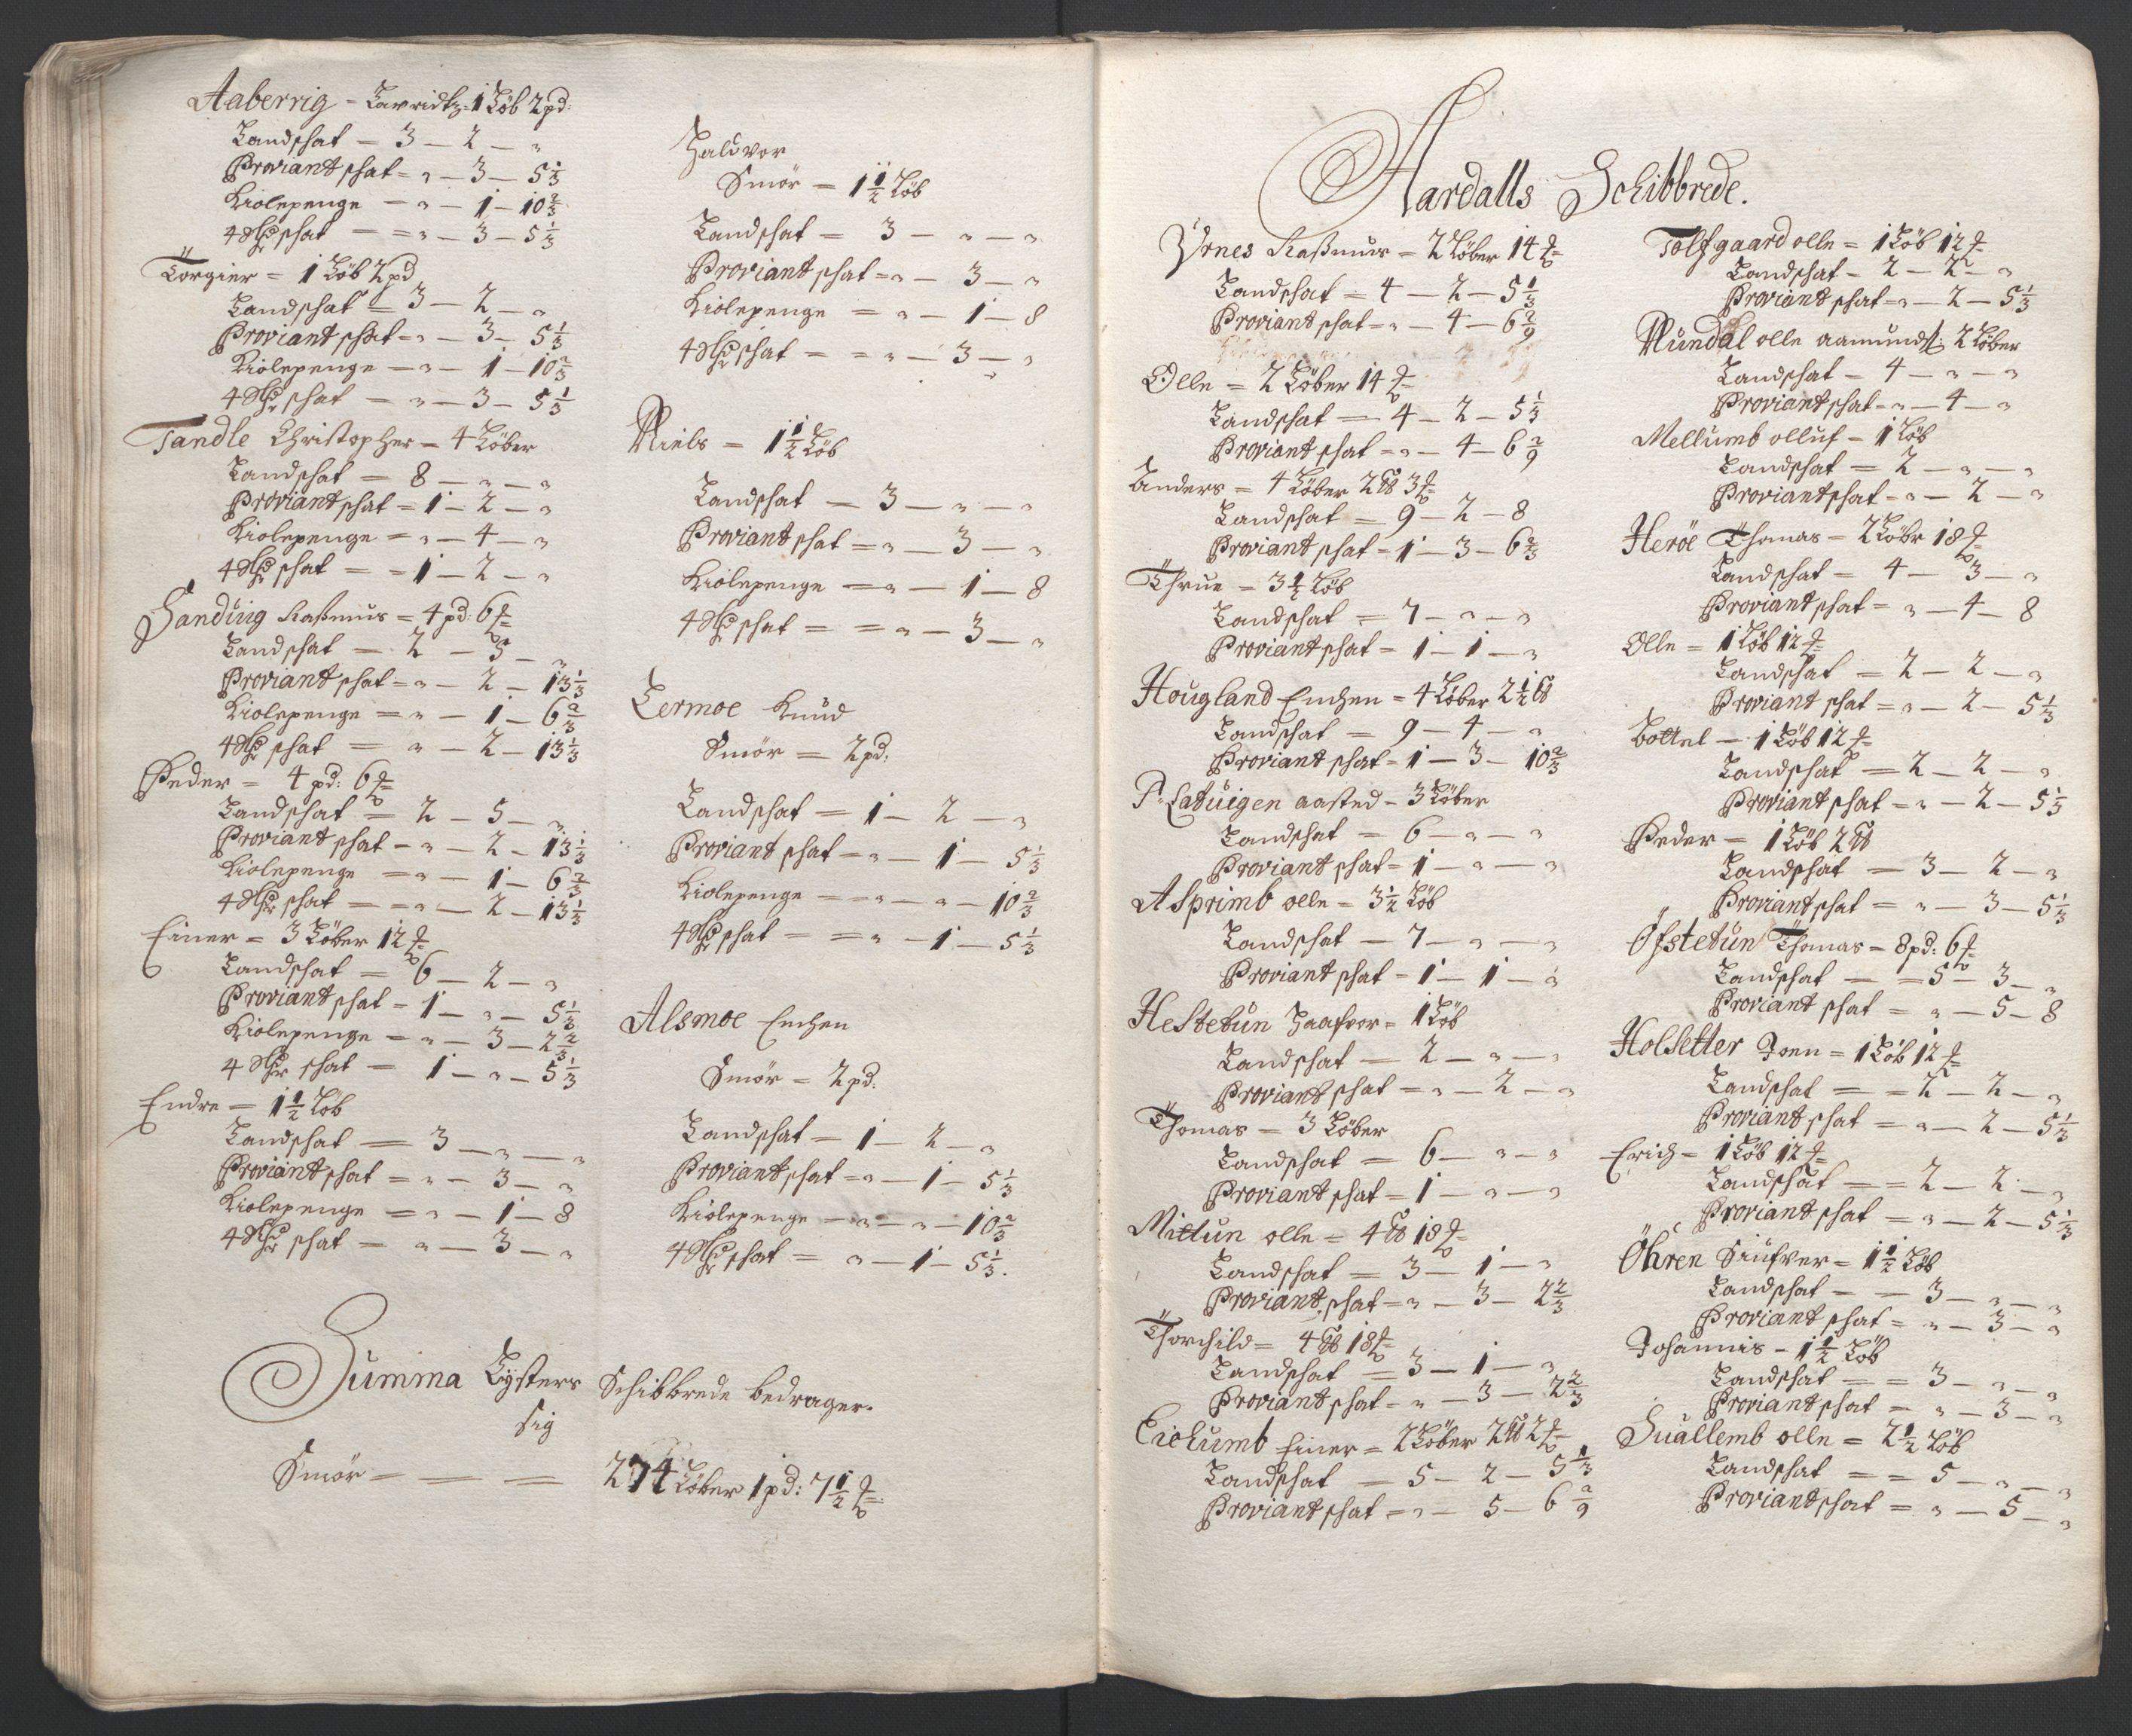 Aaberrig - Lavridtz = 1 Løb 2 pd:
Landschat = 3 — 2 — "
Proviantschat = " — 3 — 5 1/3
Kiolepenge — " — 1 — 10 2/3
4 Rdr schat = = " — 3 — 5 1/3
Törgier = 1 Løb 2 pd
Landschat = 3 — 2 — "
Proviantschat = " — 3 — 5 1/3
Kiolepenge — " — 1 — 10 2/3
4 Rdr schat = " — 3 — 5 1/3
Tandle Christopher = 4 Løber
Landschat = 8 — " — "
Proviantschat = 1 — 2 — "
Kiolepenge = " — 4 — "
4 Rdr schat = = 1 — 2 — "
Sanduig Rasmus = 4 pd: 6 ℔
Landschat = 2 — 5 — "
Proviantschat = " — 2 — 13 1/3
Kiolepenge = " — 1 — 6 2/3
4 Rdr schat = " — 2 — 13 1/3
Peder = 4 pd: 6 ℔
Landschat = 2 — 5 — "
Proviantschat = " — 2 — 13 1/3
Kiolepenge = " — 1 — 6 2/3
4 Rdr schat = = " — 2 — 13 1/3
Einer = 3 Løber 12 ℔
Landschat = 6 — 2 — "
Proviantschat = 1 — " — 5 1/3
Kiolepenge = " — 3 — 2 2/3
4 Rdr schat = 1 — " — 5 1/3
Endre — 1 1/2 Løb
Landschat = 3 — " — "
Proviantschat = " — 3 — "
Kiolepenge = " — 1 — 8
4 Rdr schat = " — 3 — "
Haluvor
Smör = 1 1/2 Løb
Landschat = 3 — " — "
Proviantschat = " — 3 — "
Kiolepenge = " — 1 — 8
4 Rdr schat = = " — 3 — "
Niels = 1 1/2 Løb
Landschat = 3 — " — "
Proviantschat = " — 3 — "
Kiolepenge = " — 1 — 8
4 Rdr schat = = " — 3 — "
Lermoe Knud
Smör = 2 pd:
Landschat = 1 — 2 — "
Proviantschat = " — 1 — 5 1/3
Kiolepenge = " — " — 10 2/3
4 Rdr schat = = " — 1 — 5 1/3
Alsmoe Enchen
Smör = 2 pd:
Landschat = 1 — 2 — "
Proviantschat = " — 1 — 5 1/3
Kiolepenge — " — " — 10 2/3
4 Rdr schat = " — 1 — 5 1/3.
Summa Lysters Schibbrede bedrager
sig
Smör = = = 274 Løber 1 pd: 7 1/2 ℔
Aardalls Schibbrede.
Yrnes Rasmus = 2 Løber 14 ℔
Landschat = 4 — 2 — 5 1/3
Proviantschat = " — 4 — 6 2/9
Olle = 2 Løber 14 ℔
Landschat = 4 — 2 — 5 1/3
Proviantschat = " — 4 — 6 2/9
Anders = 4 Løber 2 pd 3 ℔
Landschat = 9 — 2 — 8
Proviantschat = 1 — 3 — 6 2/3
Thrue = 3 1/2 Løb
Landschat = 7 — " — "
Proviantschat = 1 — 1 — "
Hougland Enchen = 4 Løber 2 1/2 pd
Landschat = 9 — 4 — "
Proviantschat = 1 — 3 — 10 2/3
P: Latuigen aasted = 3 Løber
Landschat = 6 — " — "
Proviantschat = 1 — " — "
Asprimb olle = 3 1/2 Løb
Landschat — 7 — " — "
Proviantschat = 1 — 1 — "
Hestetun Haafvor = 1 Løb
Landschat = 2 — " — "
Proviantschat = " — 2 — "
Thomas = 3 Løber
Landschat = 6 — " — "
Proviantschat = 1 — " — "
Mittun olle = 4 pd 18 ℔
Landschat = 3 — 1 — "
Proviantschat = " — 3 — 2 2/3
Thorchild = 4 pd 18 ℔
Landschat = 3 — 1 — "
Proviantschat = " — 3 — 2 2/3
Eickumb Einer = 2 Løber 2 pd 2 ℔
Landschat = 5 — 2 — 5 1/3
Proviantschat = " — 5 — 6 2/9
Tolfgaard olle = 1 Løb 12 ℔
Landschat = 2 — 2 — "
Proviantschat = " — 2 — 5 1/3
Nundal olle aamunds: 2 Løber
Landschat = 4 — " — "
Proviantschat = " — 4 — "
Mellumb olluf = 1 Løb
Landschat = 2 — " — "
Proviantschat = " — 2 — "
Heröe Thomas = 2 Løbr 18 ℔
Landschat = 4 — 3 — "
Proviantschat = " — 4 — 8
Olle = 1 Løb 12 ℔
Landschat = 2 — 2 — "
Proviantschat = " — 2 — 5 1/3
Bottel — 1 Løb 12 ℔
Landschat = 2 — 2 — "
Proviantschat = " — 2 — 5 1/3
Peder = 1 Løb 2 pd
Landschat = 3 — 2 — "
Proviantschat = " — 3 — 5 1/3
Öfstetun Thomas = 8 pd: 6 ℔
Landschat = = 5 — 3 — "
Proviantschat = " — 5 — 8
Holsetter Joen = 1 Løb 12 ℔
Landschat = = 2 — 2 — "
Proviantschat = " — 2 — 5 1/3
Erich = 1 Løb 12 ℔
Landschat = = 2 — 2 — "
Proviantschat = " — 2 — 5 1/3
Öhren Siufver = 1 1/2 Løb
Landschat = = 3 — " — "
Proviantschat = " — 3 — "
Johannis = 1 1/2 Løb
Landschat = = 3 — " — "
Proviantschat = " — 3 — "
Suallemb olle = 2 1/2 Løb
Landschat = = 5 — " — "
Proviantschat = " — 5 — "